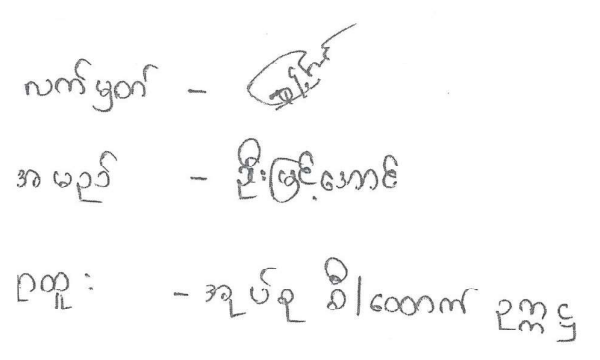 လက်မှတ် -
အမည် - ဦးမြင့်အောင်
ရာထူး - အုပ်စု ဝီ/ထောက် ဥက္ကဋ္ဌ